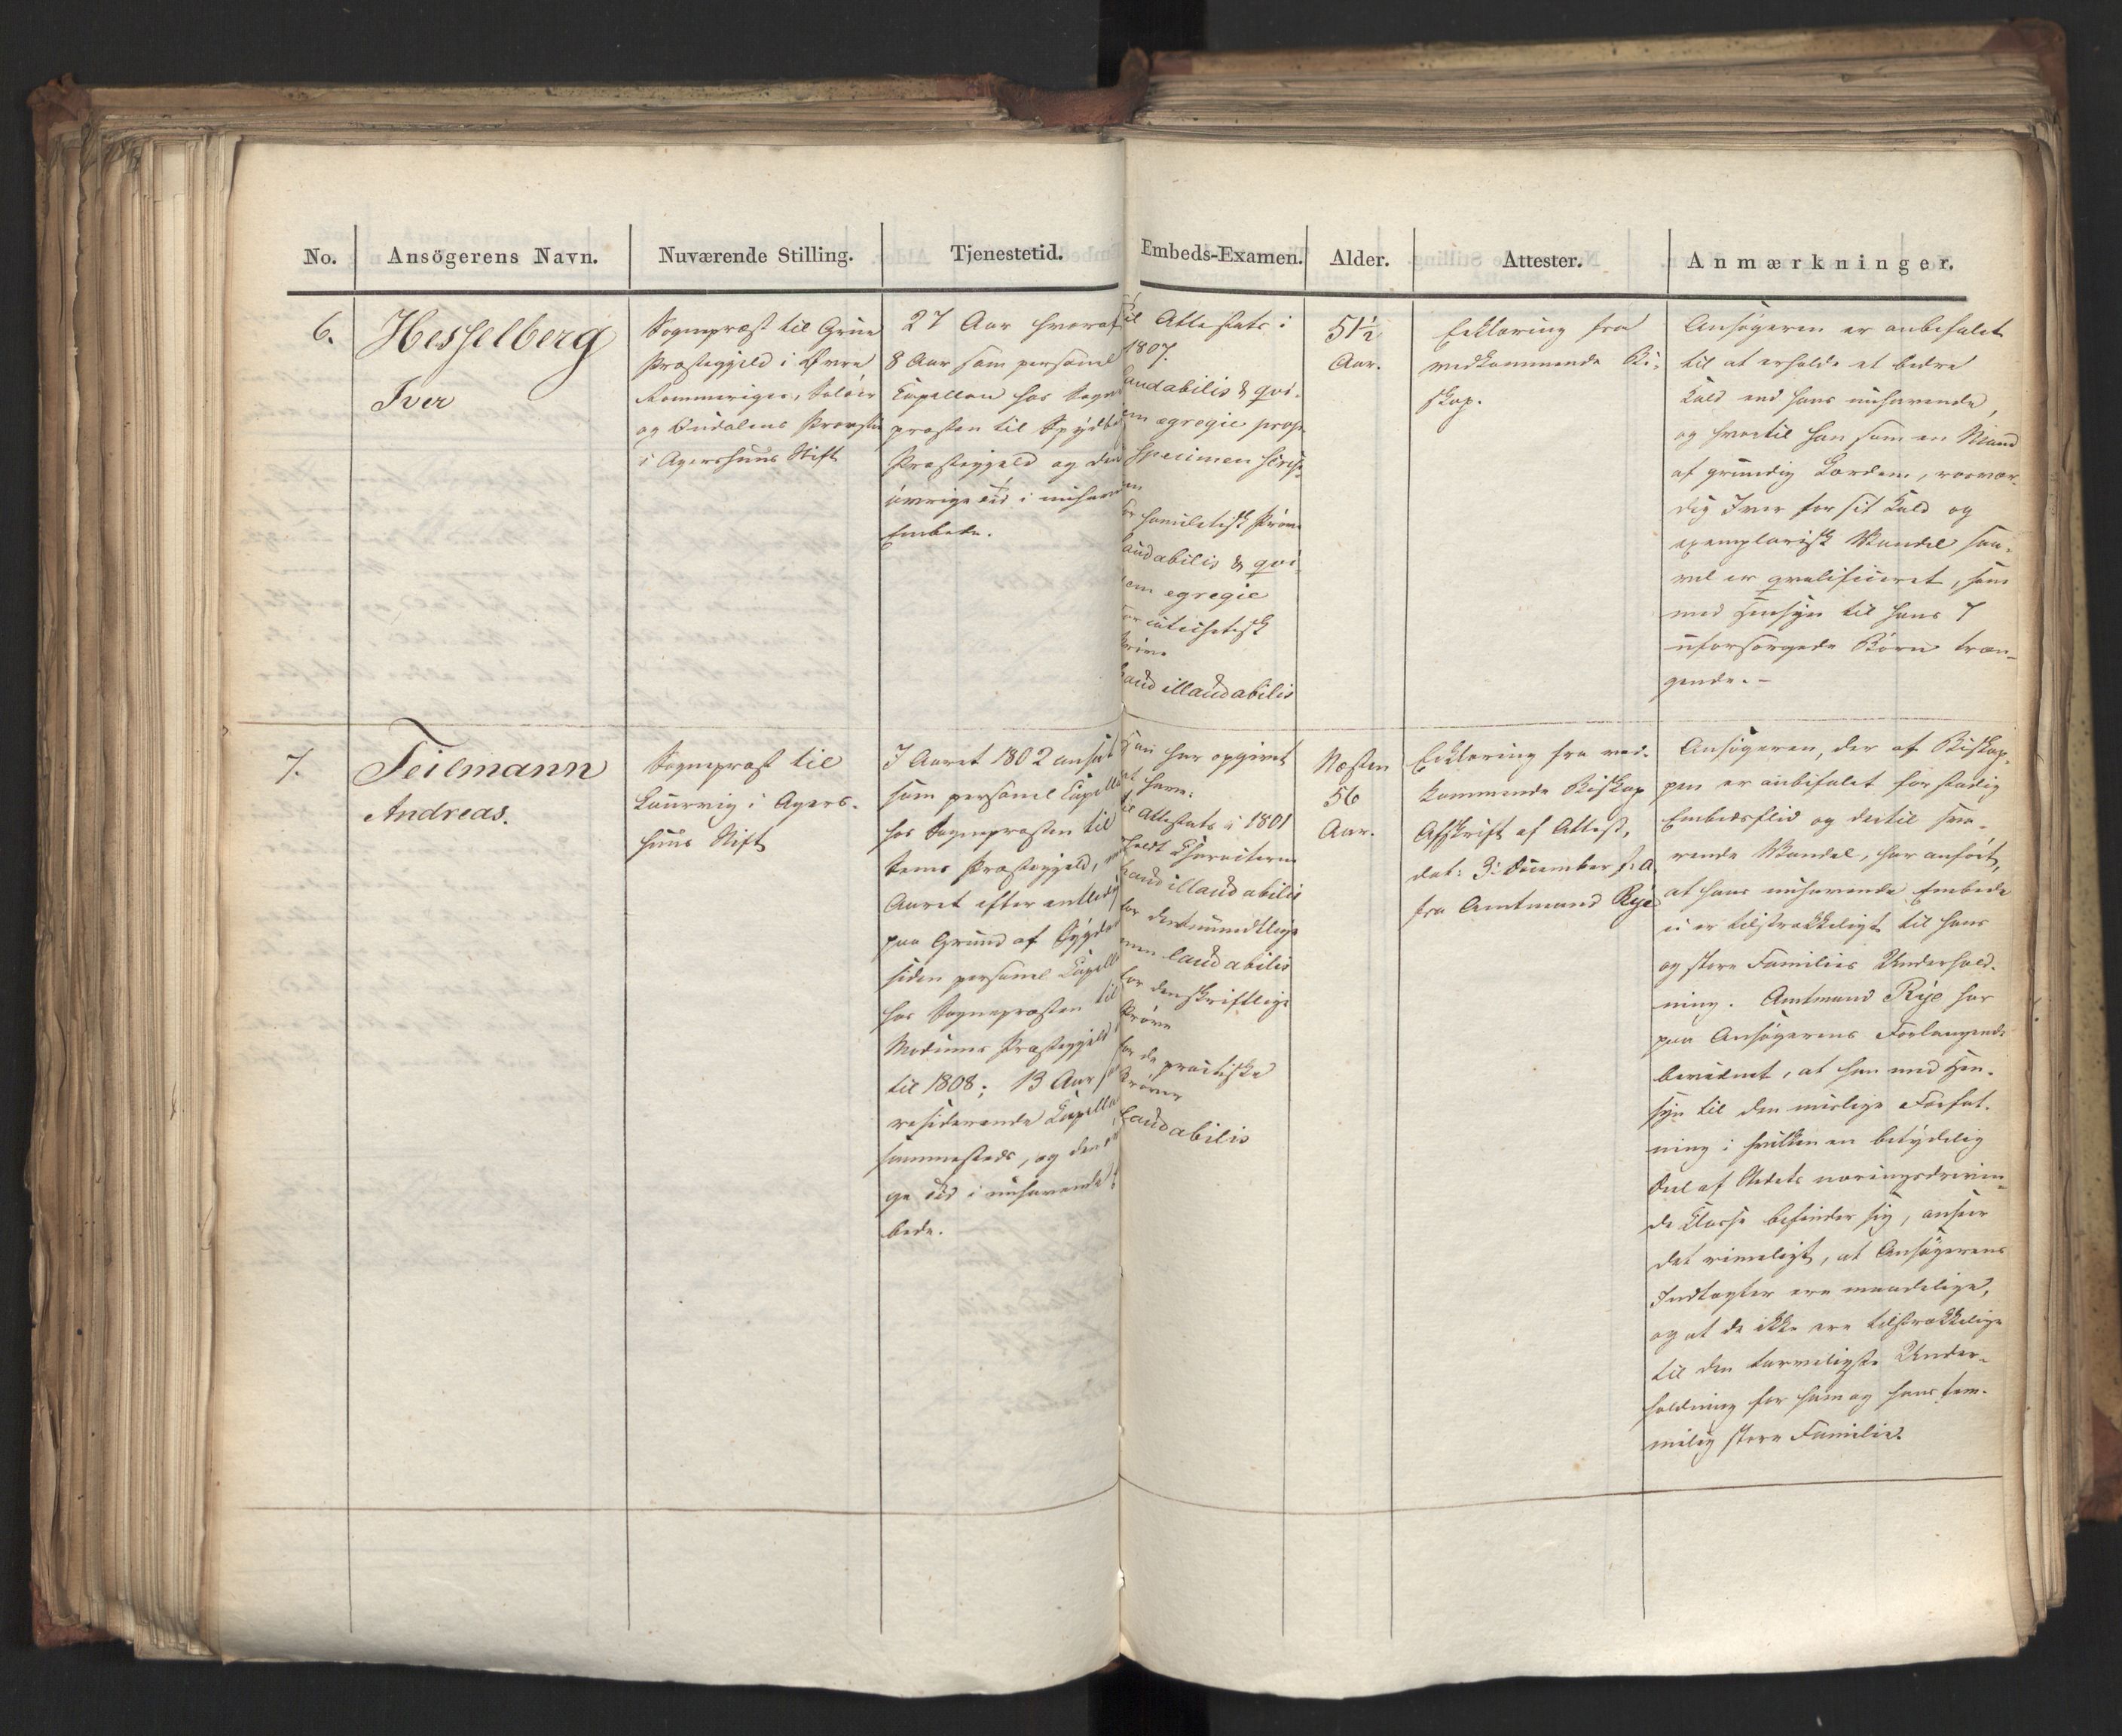 No.
Ansögerens Navn.
Nuværende Stilling.
Tjenestetid.
Embeds-Examen.
Alder.
Attester.
Anmærkninger.
6.
Hesselberg
Iver
Sognepræst til Grue
Præstegjeld i Øvre
Rommeriges, Soløer
og Oudalens Provstie
i Agershuus Stift
27 Aar hvoraf
8 Aar som personel
Capellan hos Sogne
præsten til Spydbe
Præstegjeld og den
øvrige Tid i nuhave
Embede.
til Attestats i
1807.
laudabilis & qvi-
dem egregie præs
Specimen scrips
homiletisk Prøve
laudabilis & qvi-
dem egregie
for catechetisk
Prøve
haud illaudabilis
51½
Aar.
Erklæring fra
vedkommende Bi-
skop.
Ansøgeren er anbefalet
til at erholde et bedre
Kald end hans nuhavende,
og hvortil han som en Mand
af grundig Lærdom, roesvær-
dig Iver for sit Kald og
exemplarisk Vandel saa-
vel er qvalificeret, som
med Hensyn til hans 7
uforsørgede Børn træn-
gende. -
7.
Teilmann
Andreas.
Sognepræst til
Laurvig i Agers-
huus Stift
I Aaret 1802 ansat
som personel Capella
hos Sognepræsten til
Sems Præstegjeld,
Aaret efter entledi
paa Grund af Sygdom
siden personel Capella
hos Sognepræsten til
Modums Præstegjeld
til 1808; 13 Aar som
residerende Capella
sammesteds, og den
ge Tid i nuhavende
bede.
Han har opgivet
at have.
til Attestats i 1801
holdt Characteren
haud illaudabilis
for den mundtlige
men laudabilis
for den skriftlige
Prøve
for de practiske
Prøver
Laudabilis
Næsten
56
Aar.
Erklæring fra ved-
kommende Biskop
Afskrift af Attest,
dat: 3: December f: A.
fra Amtmand Rye
Ansøgeren, der af Biskop-
pen er anbefalet for stadig
Embedsflid og dertil sva-
rende Vandel, har anført,
at hans nuhavende Embede
ei er tilstrækkeligt til hans
og store Families Underhold-
ning. Amtmand Rye har
paa Ansøgerens Forlangende
bevidnet, at han med Hen-
syn til den mislige Forfat-
ning i hvilken en betydelig
Deel af Stedets næringsdriven-
de Classe befinder sig, anseer
det rimeligt, at Ansøgerens
Indtægter ere maadelige,
og at de ikke ere tilstrækkelige
til den tarveligste Under-
holdning for ham og hans tem-
melig store Familie.